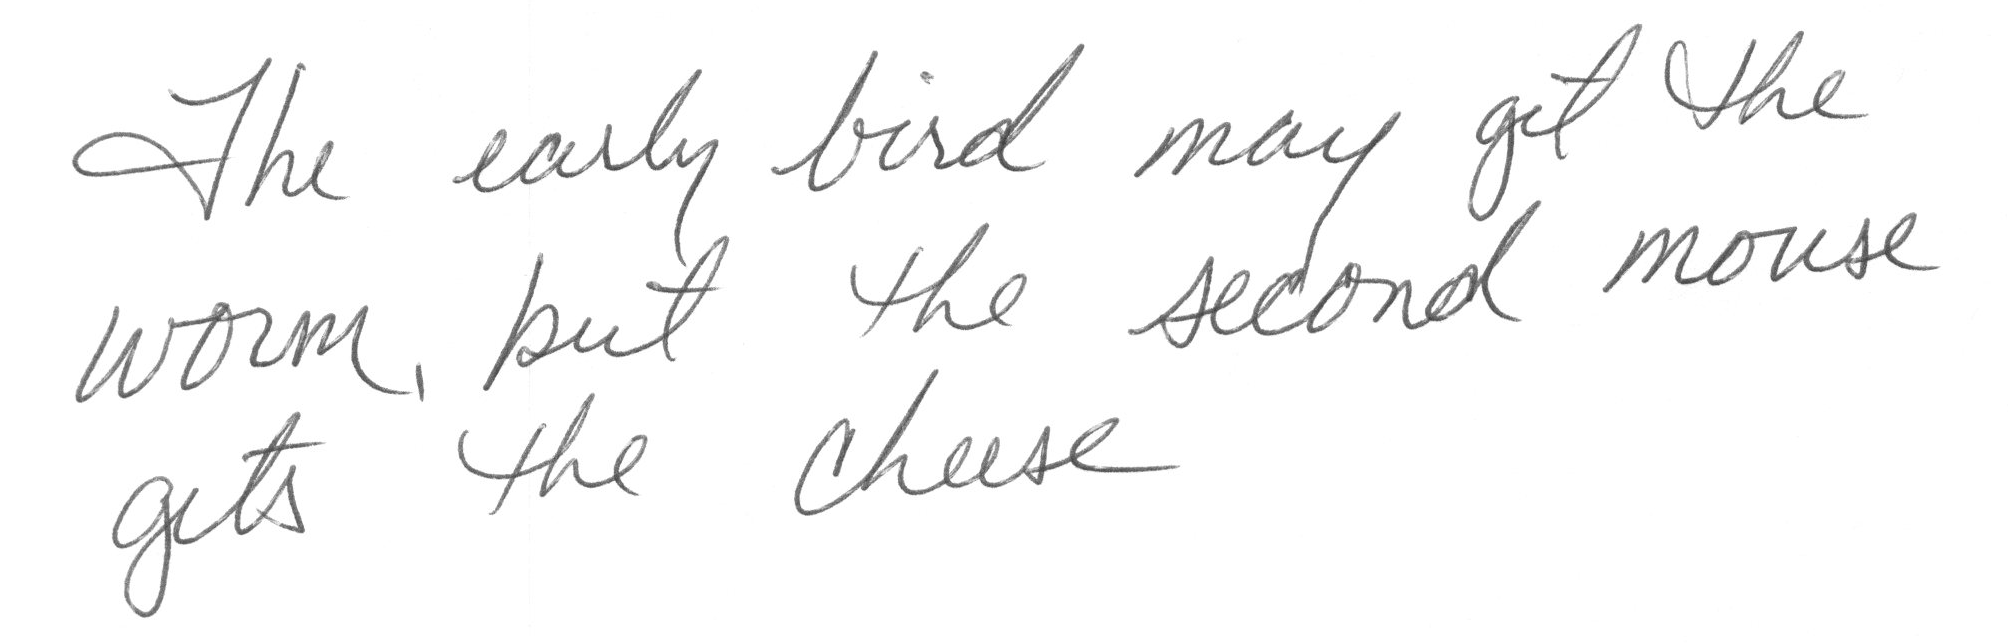 The early bird may get the
worm, but the second mouse
gets the cheese